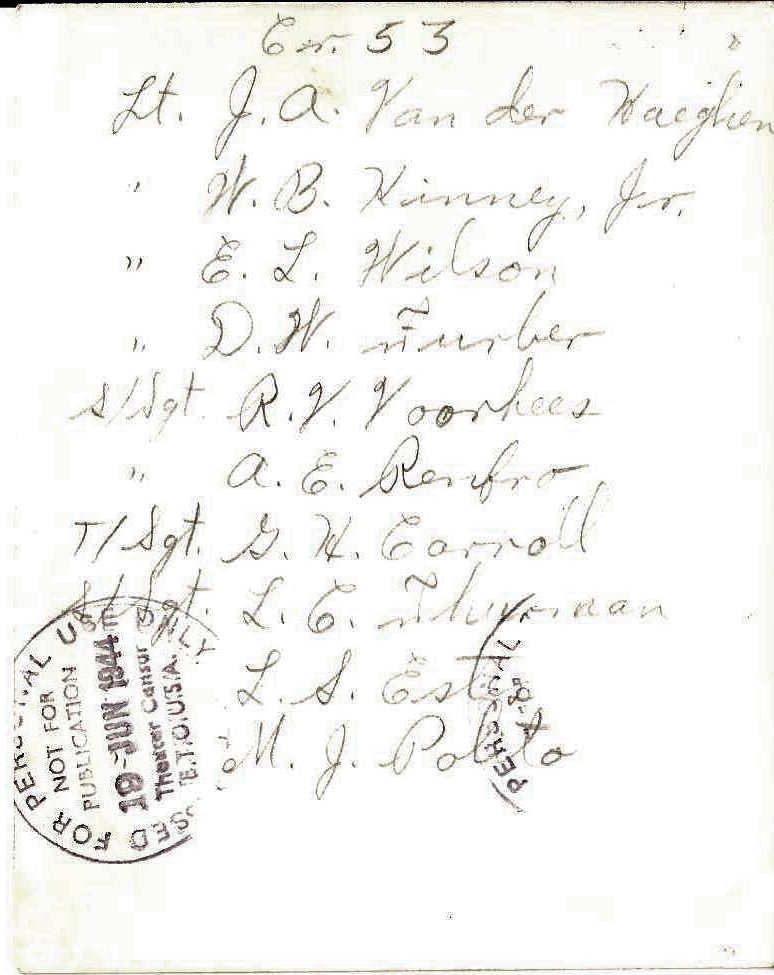 Cr. 53
Lt. J. A. Van der Haeghen
" W. B. Kinney, Jr.
" E. L. Wilson
" D. W. Furber
S/Sgt. R. V. Voorhees
" A. E. Renfro
T/Sgt. G. H. Carroll
S/Sgt. L. C. Thurman
L. S.
M. J. Polito
PASSED FOR PERSONAL USE ONLY
NOT FOR
PUBLICATION
19 JUN 1944
Theater Censor
E.T.O.U.S.A.
PERSONAL